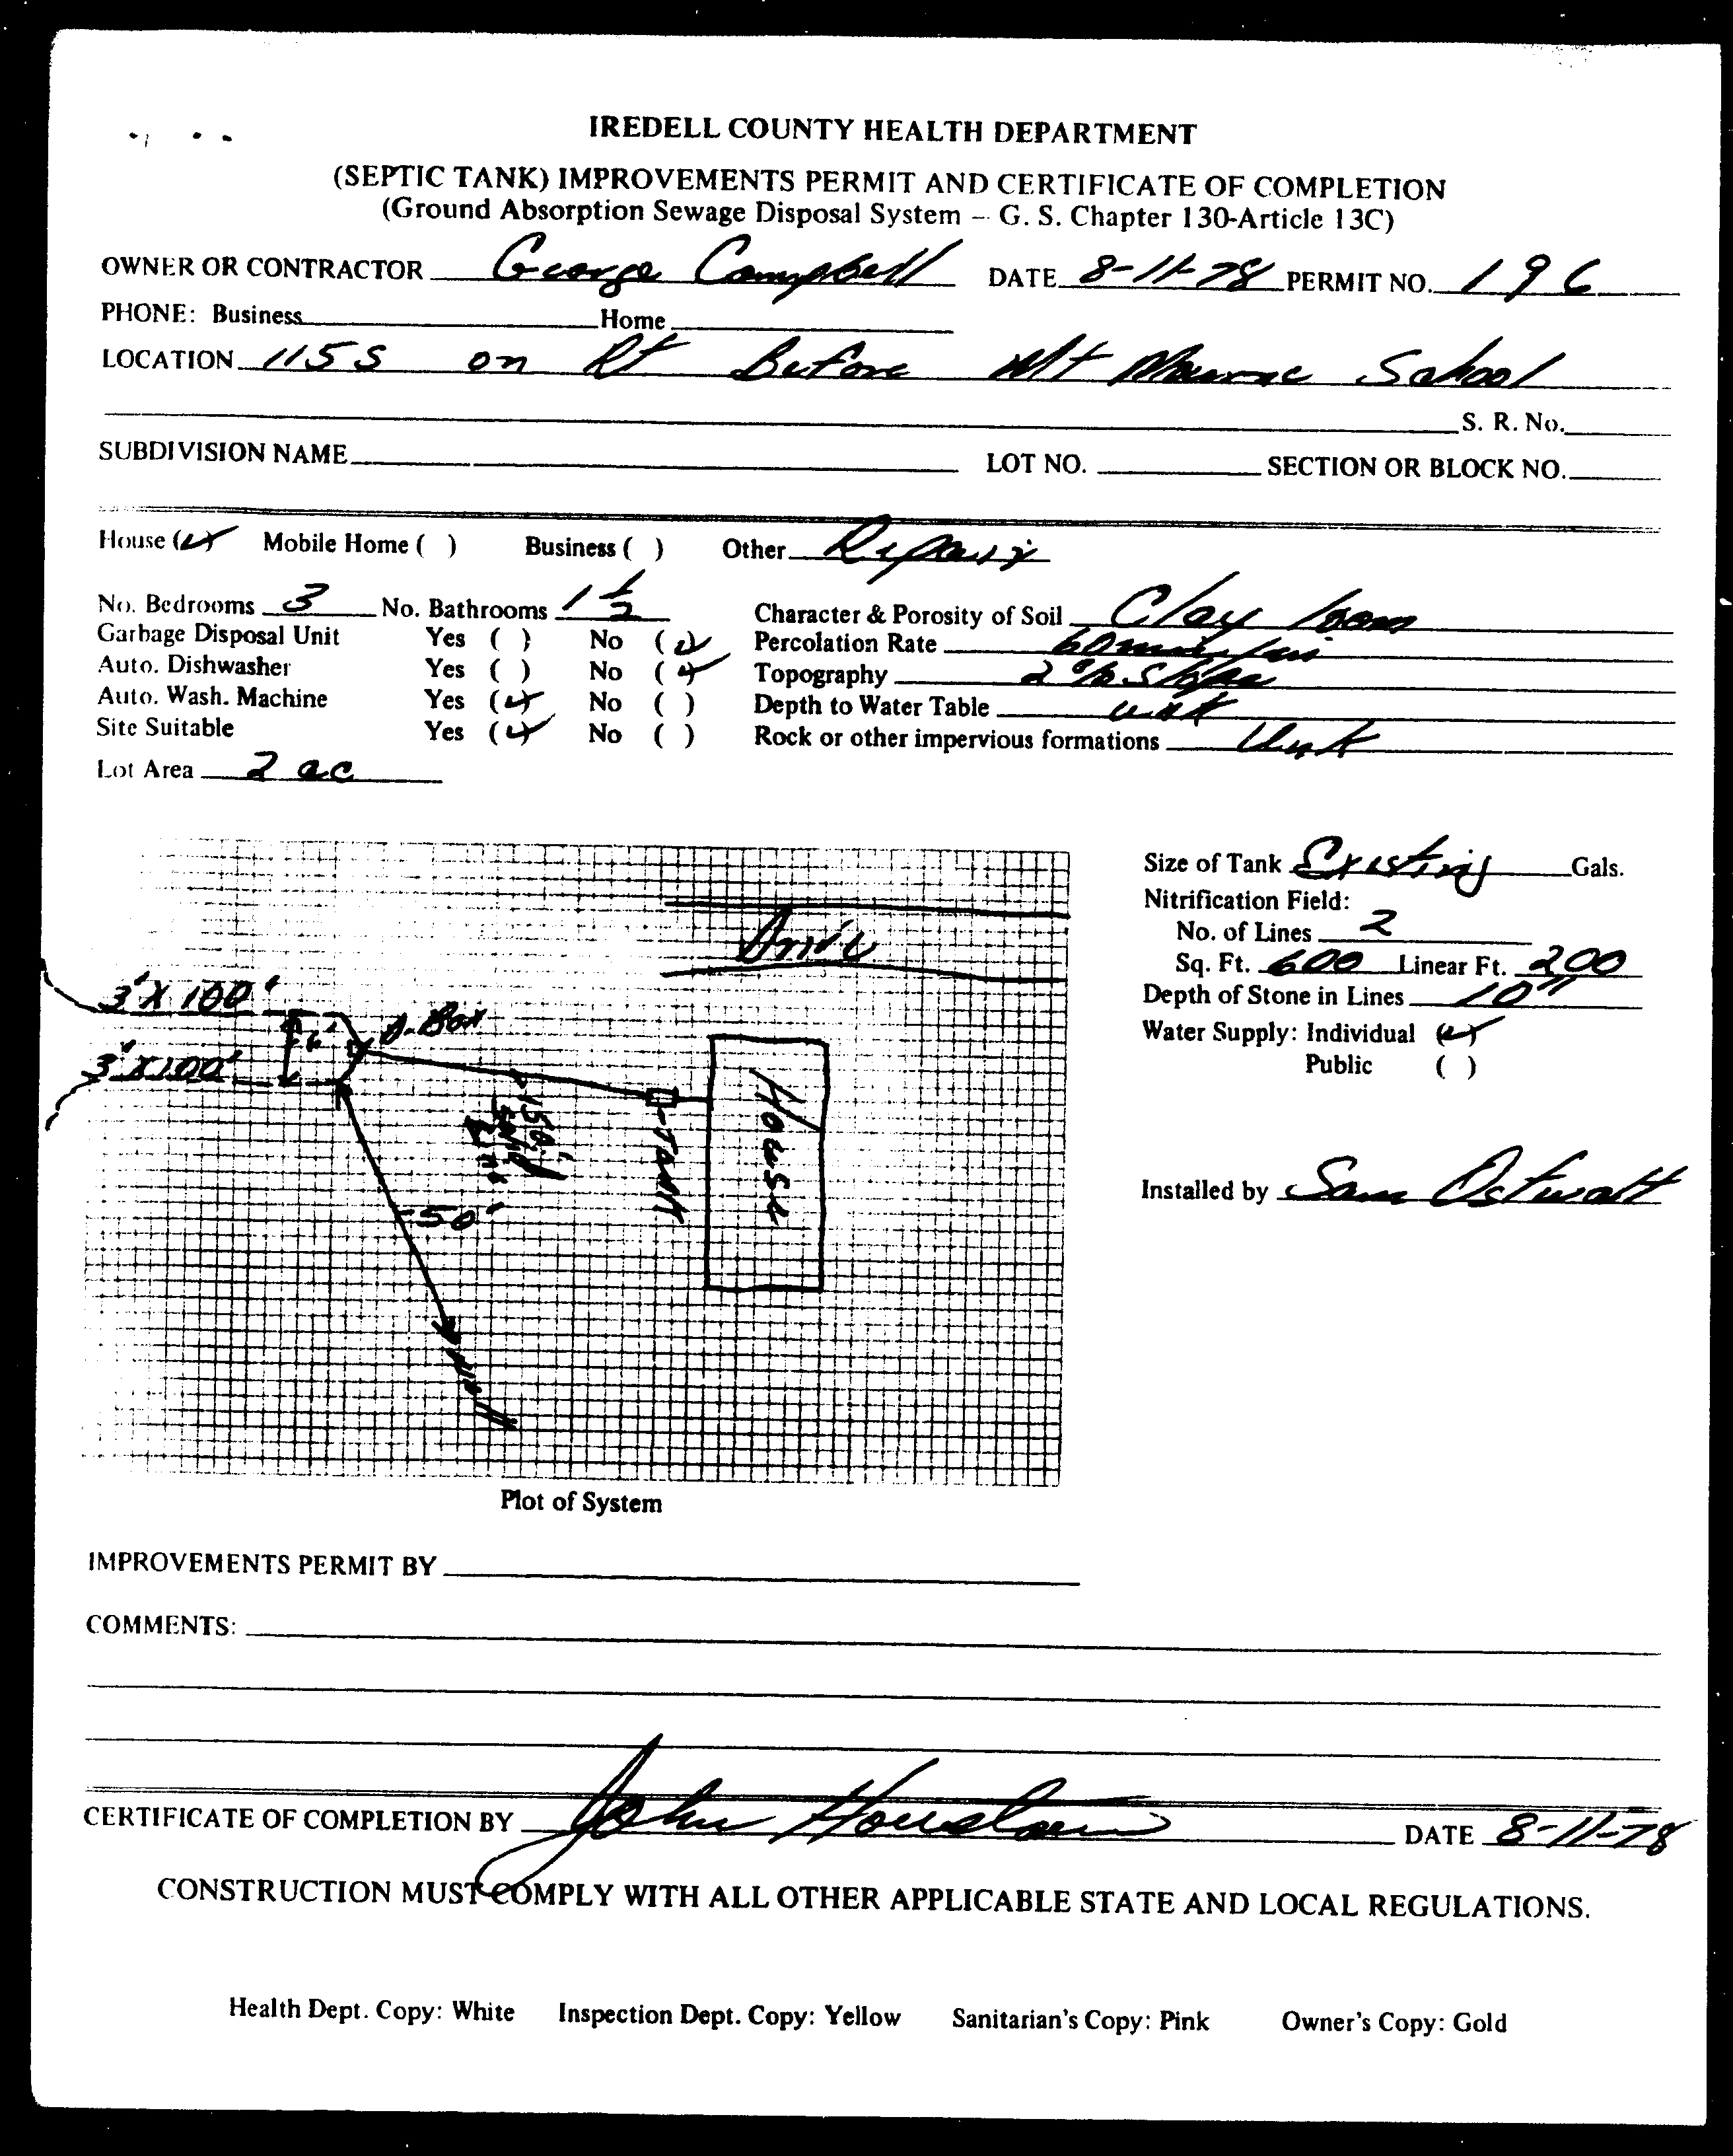 IREDELL COUNTY HEALTH DEPARTMENT
(SEPTIC TANK) IMPROVEMENTS PERMIT AND CERTIFICATE OF COMPLETION
(Ground Absorption Sewage Disposal System – G. S. Chapter 130-Article 13C)
OWNER OR CONTRACTOR George Campbell DATE 8-11-78 PERMIT NO. 196
PHONE: Business Home
LOCATION 115 S on Rt Before Mt Mourne School
S. R. No.
SUBDIVISION NAME LOT NO. SECTION OR BLOCK NO.
House (✓) Mobile Home ( ) Business ( ) Other Repair
No. Bedrooms 3 No. Bathrooms 1 1/2 Character & Porosity of Soil Clay loam
Garbage Disposal Unit Yes ( ) No (✓) Percolation Rate 60 min/in
Auto. Dishwasher Yes ( ) No (✓) Topography 2% Slope
Auto. Wash. Machine Yes (✓) No ( ) Depth to Water Table unk
Site Suitable Yes (✓) No ( ) Rock or other impervious formations Unk
Lot Area 2 ac
Size of Tank Existing Gals.
Nitrification Field:
No. of Lines 2
Sq. Ft. 600 Linear Ft. 200
Depth of Stone in Lines 10"
Water Supply: Individual (✓)
Public ( )
Installed by Sam Ostwalt
Drive
3' X 100'
D-Box
6'
3' X 100'
House
TANK
150'
50'
Plot of System
IMPROVEMENTS PERMIT BY
COMMENTS:
CERTIFICATE OF COMPLETION BY John Houston DATE 8-11-78
CONSTRUCTION MUST COMPLY WITH ALL OTHER APPLICABLE STATE AND LOCAL REGULATIONS.
Health Dept. Copy: White Inspection Dept. Copy: Yellow Sanitarian's Copy: Pink Owner's Copy: Gold